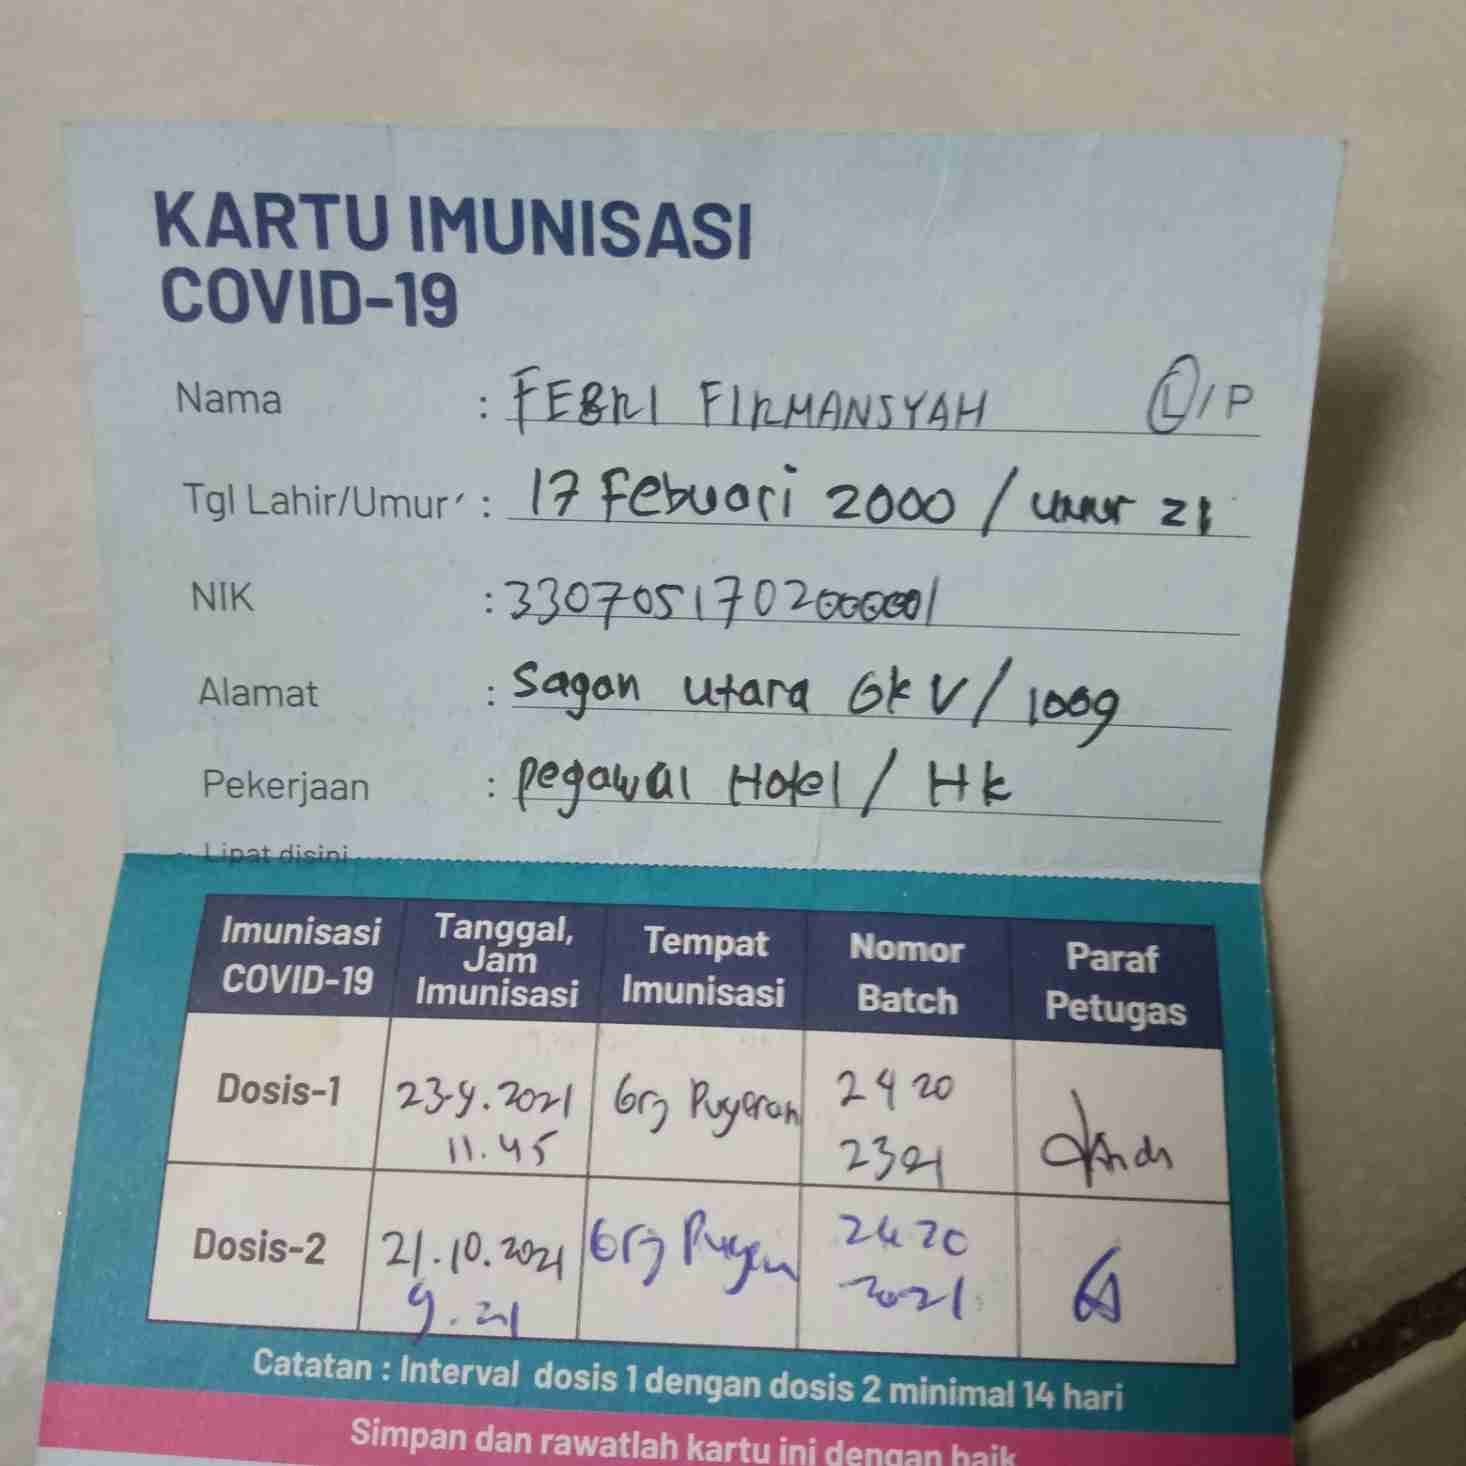 KARTU IMUNISASI
COVID-19
Nama : FEBRI FIRMANSYAH L/P
Tgl Lahir/Umur : 17 Febuari 2000 / umur 21
NIK : 3307051702000001
Alamat : Sagan utara GK V/1009
Pekerjaan : pegawai Hotel / HK
Lipat disini
Imunisasi COVID-19 Tanggal, Jam Imunisasi Tempat Imunisasi Nomor Batch Paraf Petugas
Dosis-1 23.9.2021 Grj Pugeran 2420
11.45 2321
Dosis-2 21.10.2021 Grj 2420
9.21 2021
Catatan : Interval dosis 1 dengan dosis 2 minimal 14 hari
Simpan dan rawatlah kartu ini dengan baik